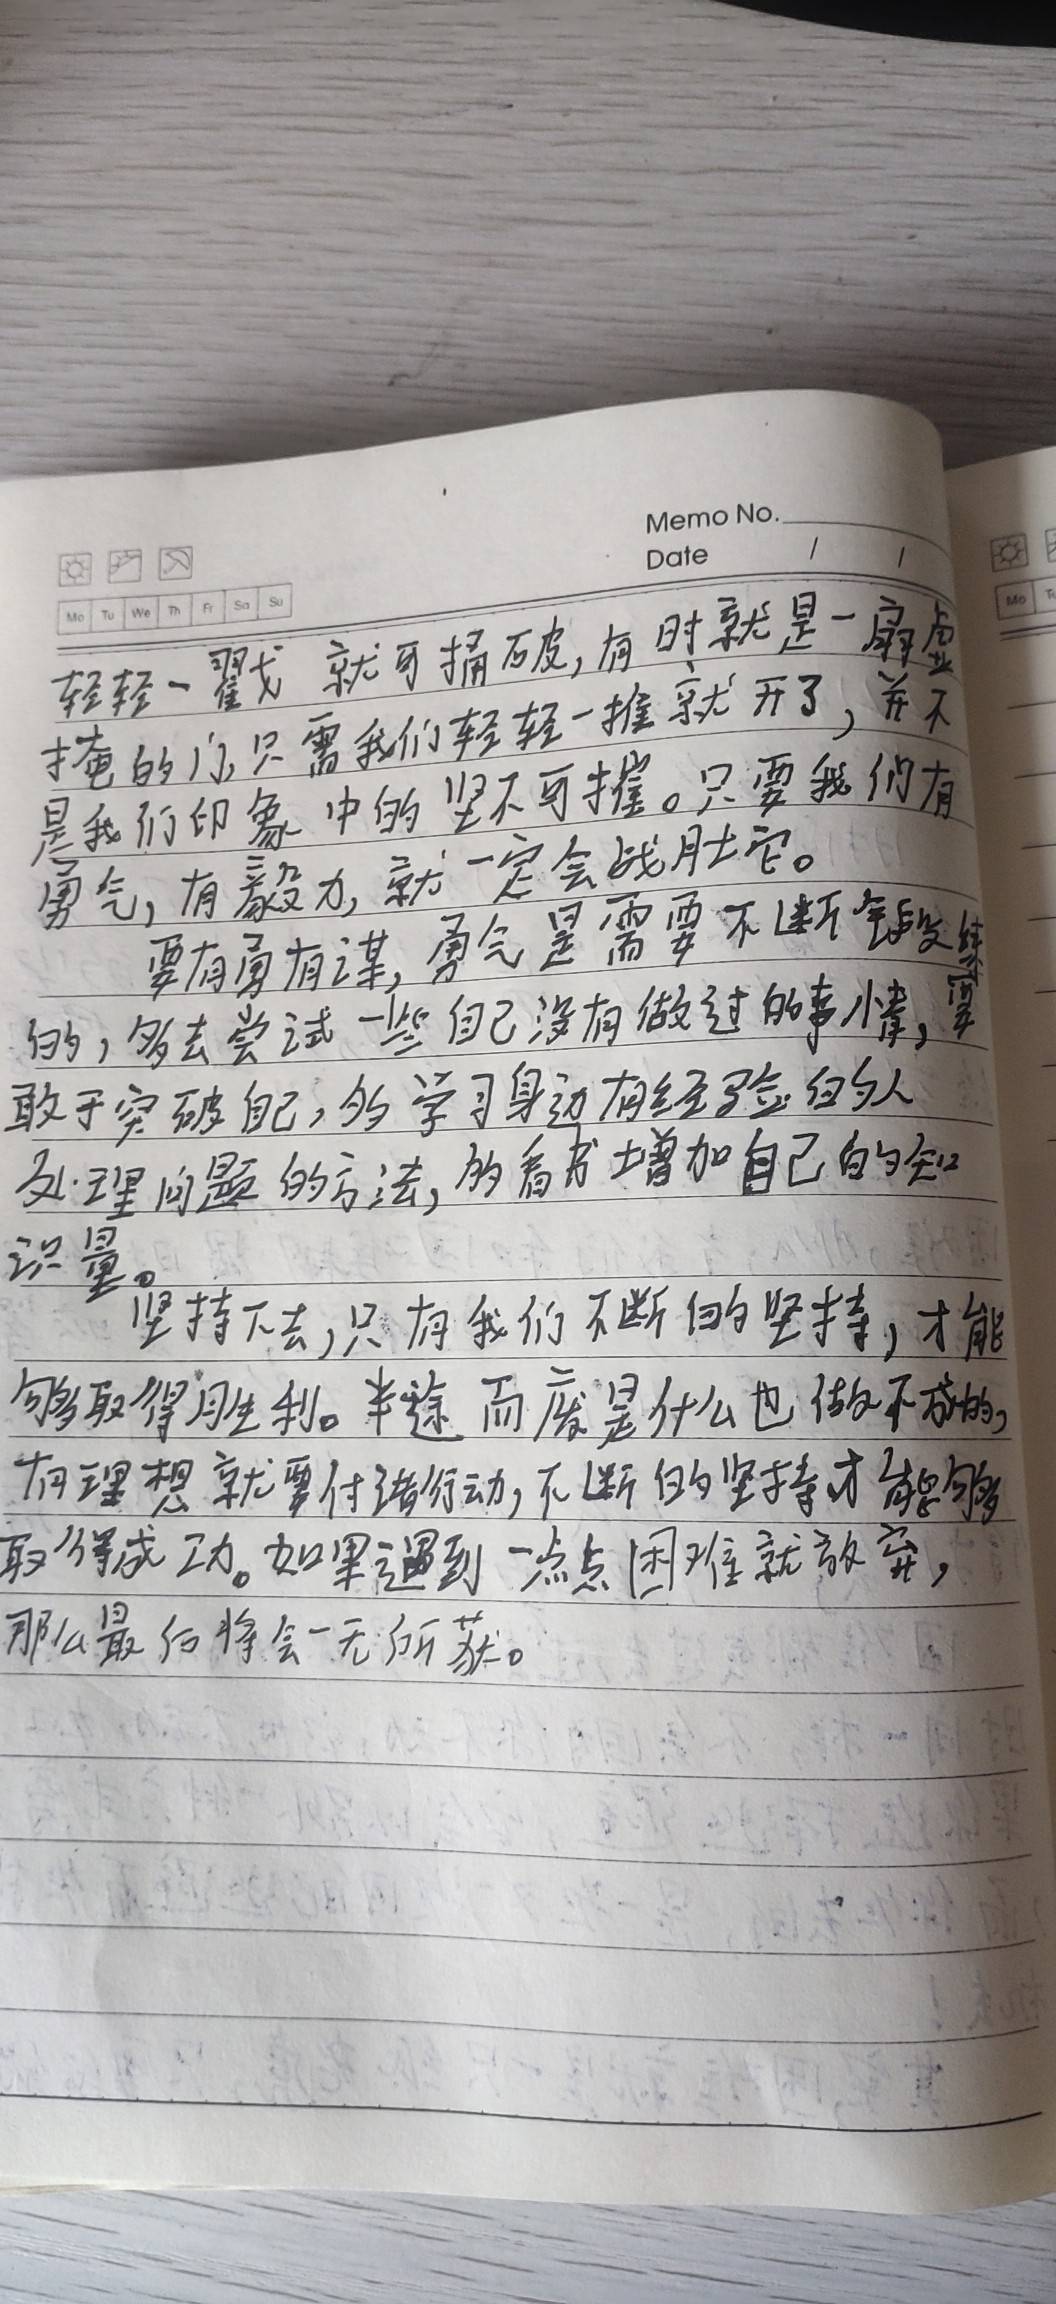 Memo No.
Date / /
Mo Tu We Th Fr Sa Su
Mo
轻轻一戳就可捅破,有时就是一扇虚
掩的门,只需我们轻轻一推就开了,并不
是我们印象中的坚不可摧。只要我们有
勇气,有毅力,就一定会战胜它。
要有勇有谋,勇气是需要不断锻练
的,多去尝试一些自己没有做过的事情,要
敢于突破自己,多学习身边有经验的人
处理问题的方法,多看书增加自己的知
识量。
坚持下去,只有我们不断的坚持,才能
够取得胜利。半途而废是什么也做不成的,
有理想就要付诸行动,不断的坚持才能够
取得成功。如果遇到一点点困难就放弃,
那么最后将会一无所获。